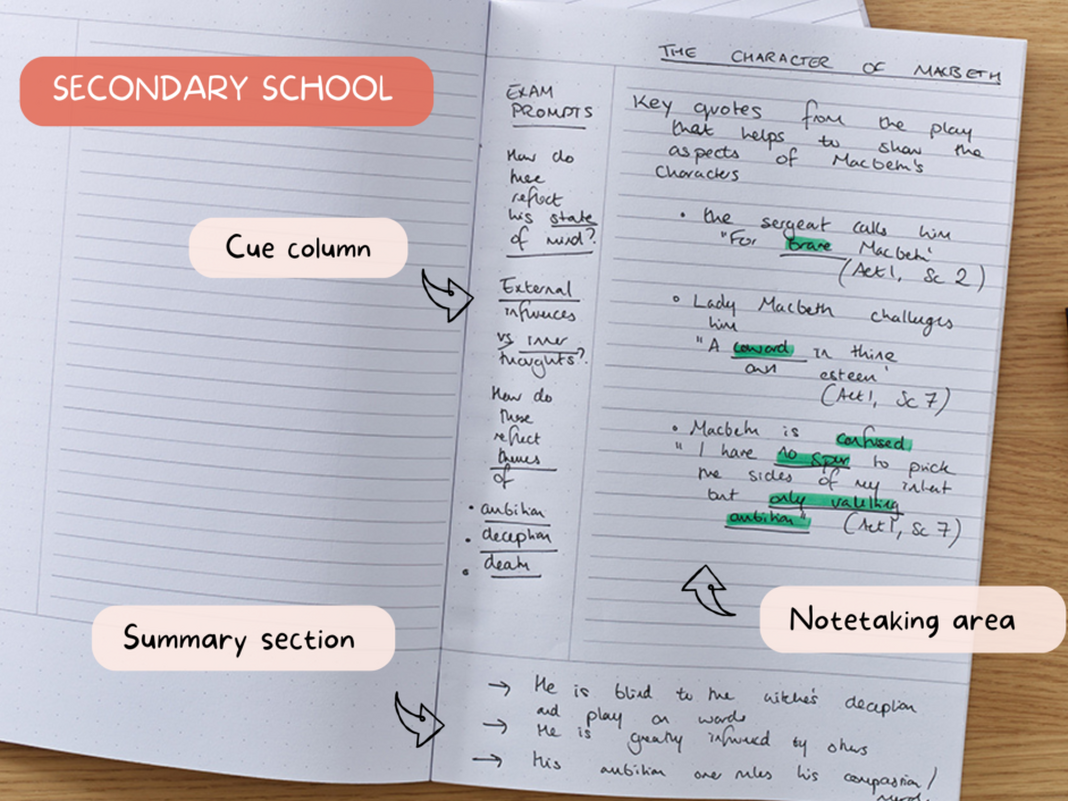 SECONDARY SCHOOL
THE CHARACTER OF MACBETH
EXAM
PROMPTS
How do
these
reflect
his state
of mind?
External
influences
vs inner
thoughts?
How do
these
reflect
themes
of
• ambition
• deception
• death
Key quotes from the play
that helps to show the
aspects of Macbeth's
Characters
• the sergeant calls him
"For brave Macbeth"
(Act 1, Sc 2)
• Lady Macbeth challenges
him
"A coward in thine
own esteem"
(Act 1, Sc 7)
• Macbeth is confused
"I have no spur to prick
the sides of my intent
but only vaulting
ambition" (Act 1, Sc 7)
Cue column
Notetaking area
Summary section
→ He is blind to the witches deception
and play on words
→ He is greatly influenced by others
→ His ambition over rules his compassion/